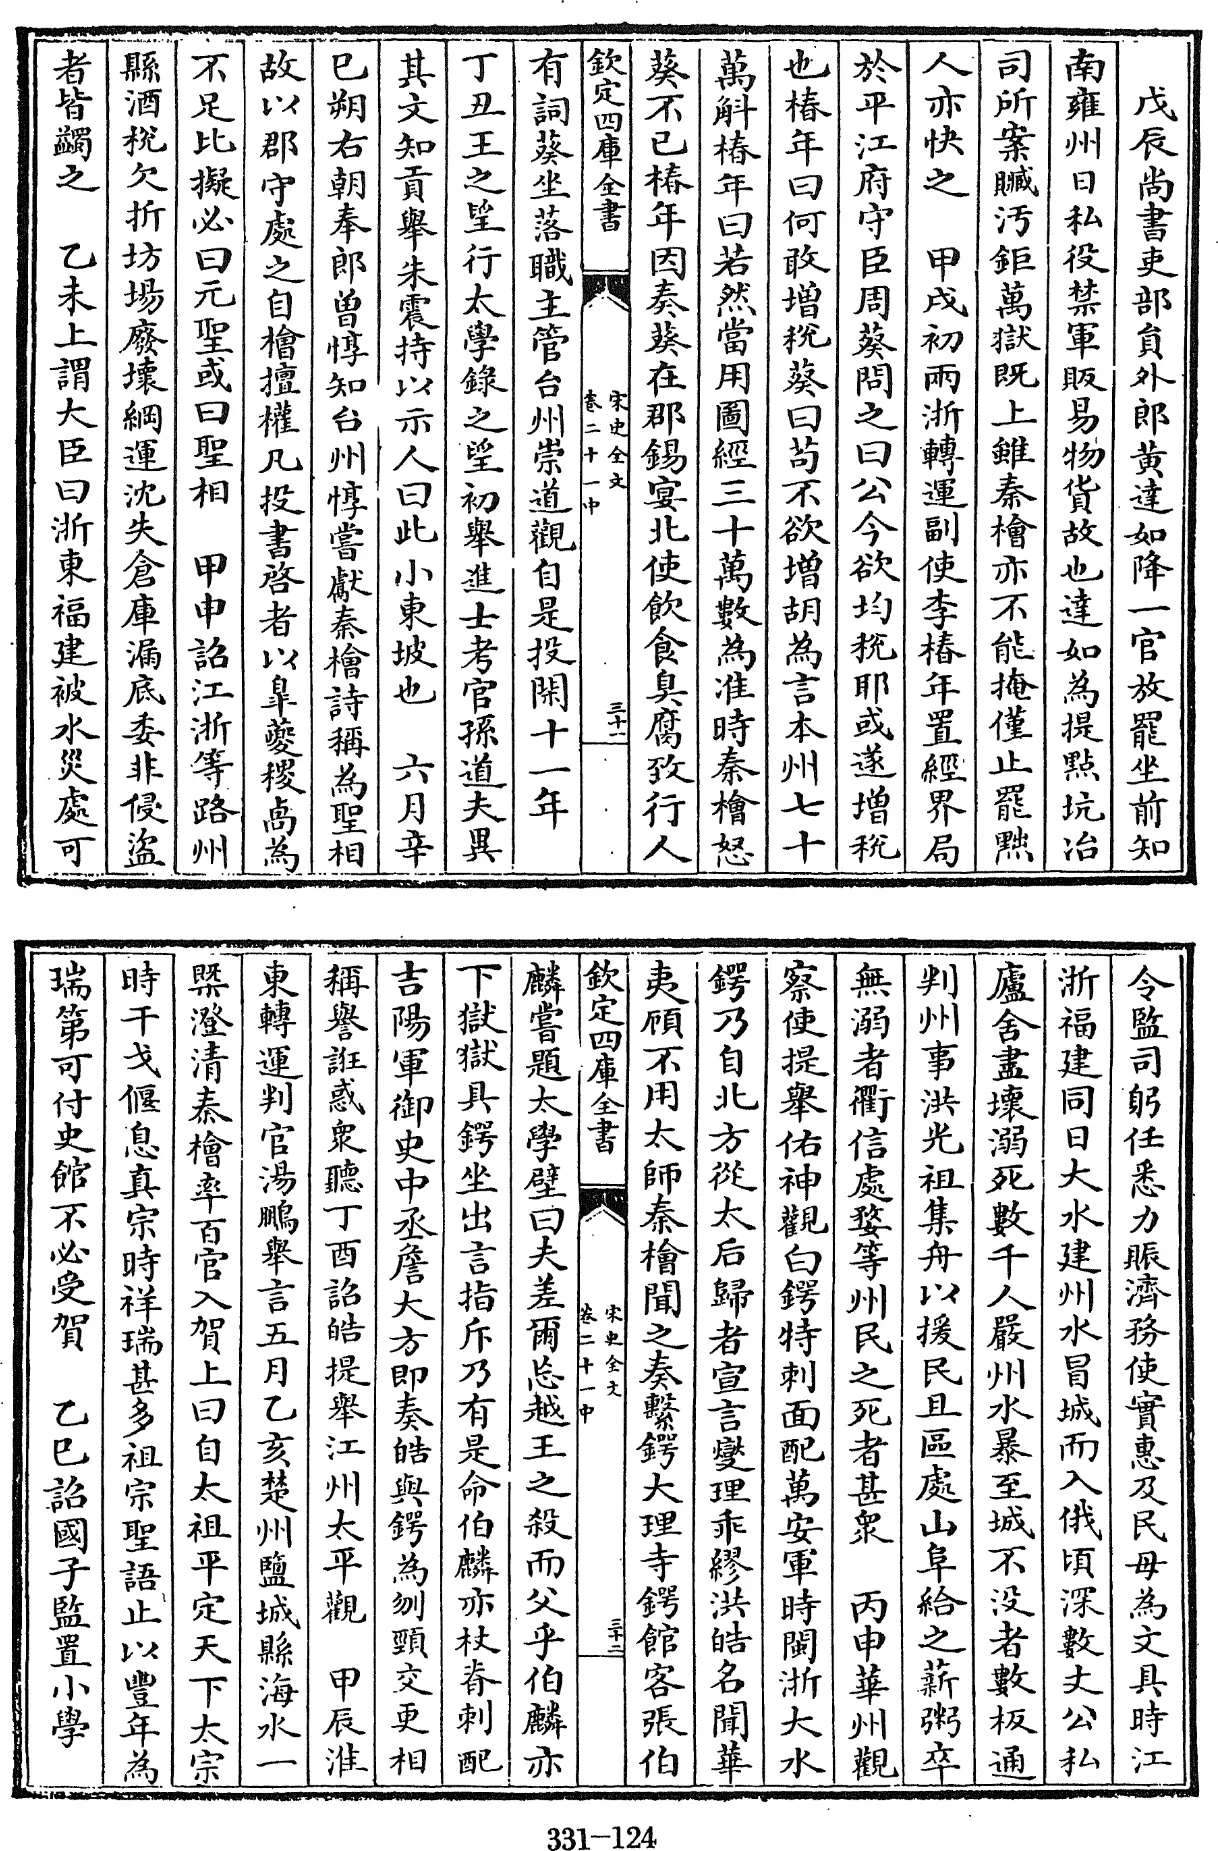 戊辰尚書吏部員外郎黄達如降一官放罷坐前知
南雍州日私役禁軍販易物貨故也達如為提點坑冶
司所案贓汚鉅萬獄既上雖秦檜亦不能掩僅止罷黜
人亦快之　甲戌初兩浙轉運副使李椿年置經界局
於平江府守臣周葵問之曰公今欲均税耶或遂増税
也椿年曰何敢増税葵曰苟不欲増胡為言本州七十
萬斛椿年曰若然當用圖經三十萬數為准時秦檜怒
葵不已椿年因奏葵在郡錫宴北使飲食臭腐致行人
欽定四庫全書
宋史全文
卷二十一中
三十一
有詞葵坐落職主管台州崇道觀自是投閑十一年
丁丑王之望行太學錄之望初舉進士考官孫道夫異
其文知貢舉朱震持以示人曰此小東坡也　六月辛
巳朔右朝奉郎曾惇知台州惇嘗獻秦檜詩稱為聖相
故以郡守處之自檜擅權凡投書啓者以臯夔稷卨為
不足比擬必曰元聖或曰聖相　甲申詔江浙等路州
縣酒税欠折坊場廢壞綱運沈失倉庫漏底委非侵盜
者皆蠲之　乙未上謂大臣曰浙東福建被水災處可
令監司躬任悉力賑濟務使實惠及民毋為文具時江
浙福建同日大水建州水冒城而入俄頃深數丈公私
廬舍盡壞溺死數千人嚴州水暴至城不没者數板通
判州事洪光祖集舟以援民且區處山阜給之薪粥卒
無溺者衢信處婺等州民之死者甚衆　丙申華州觀
察使提舉佑神觀白鍔特刺面配萬安軍時閩浙大水
鍔乃自北方從太后歸者宣言燮理乖繆洪皓名聞華
夷顧不用太師秦檜聞之奏繫鍔大理寺鍔館客張伯
欽定四庫全書
宋史全文
卷二十一中
三十二
麟嘗題太學壁曰夫差爾忘越王之殺而父乎伯麟亦
下獄獄具鍔坐出言指斥乃有是命伯麟亦杖脊刺配
吉陽軍御史中丞詹大方即奏皓與鍔為刎頸交更相
稱譽誑惑衆聽丁酉詔皓提舉江州太平觀　甲辰淮
東轉運判官湯鵬舉言五月乙亥楚州鹽城縣海水一
槩澄清秦檜率百官入賀上曰自太祖平定天下太宗
時干戈偃息真宗時祥瑞甚多祖宗聖語止以豐年為
瑞第可付史館不必受賀　乙巳詔國子監置小學
331-124